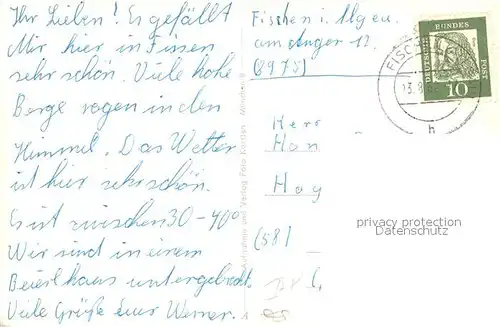 Ihr Lieben! Es gefällt
Mir hier in Fissen
sehr schön. Viele hohe
Berge ragen in den
Himmel. Das Wetter
ist hier sehr schön.
Es ist zwischen 30-40°
Wir sind in einem
haus untergebracht.
Viele Grüße Euer Werner.
Fischen i. Allgeu.
am Anger 12.
(8975)
Herr
Han
Hag
(58)
DEUTSCHE BUNDES POST
10
FISCH
13.8
h
Aufnahme und Verlag Foto
privacy protection
Datenschutz